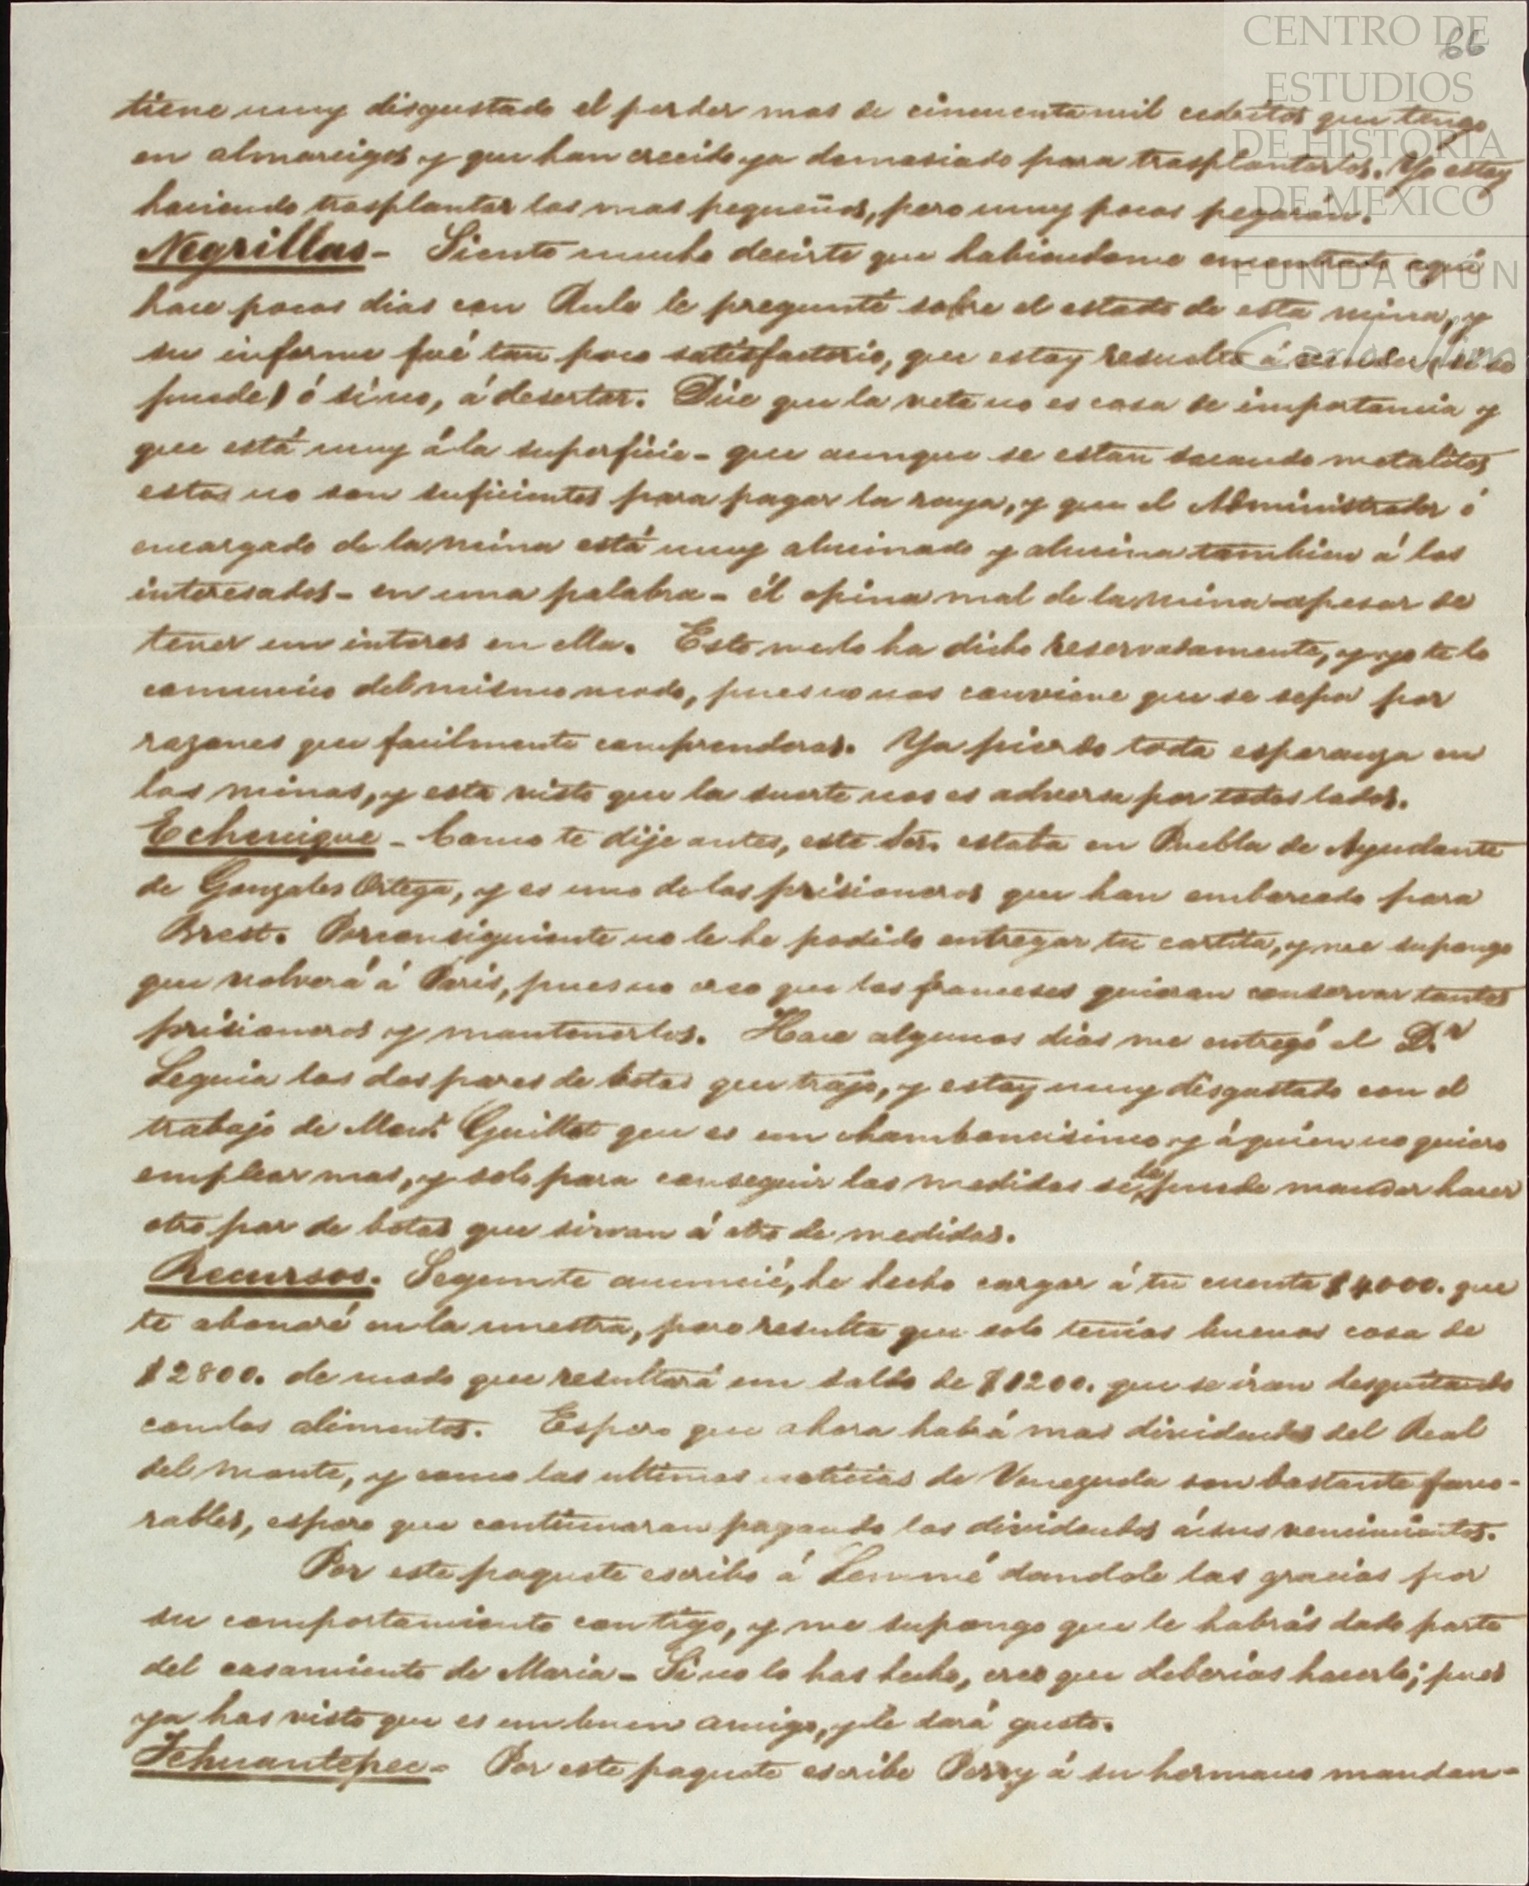 66
CENTRO DE
ESTUDIOS
DE HISTORIA
DE MEXICO
FUNDACIÓN
Carlos Slim
tiene muy disgustado el perder mas de cincuenta mil cedritos que tengo
en almacigos y que han crecido ya demasiado para trasplantarlos. Yo estoy
haciendo trasplantar los mas pequeños, pero muy pocos pegarán.
Negrillas - Siento mucho decirte que habiendome encontrado aquí
hace pocos dias con Rule le pregunté sobre el estado de esta mina, y
su informe fué tan poco satisfactorio, que estoy resuelto á vender (si se
puede) ó sino, á desertar. Dice que la veta no es cosa de importancia y
que está muy á la superficie - que aunque se estan sacando metalitos
estos no son suficientes para pagar la raya, y que el Administrador ó
encargado de la mina está muy alucinado y alucina tambien á los
interesados - en una palabra - él opina mal de la mina apesar de
tener un interes en ella. Esto me lo ha dicho reservadamente, y yo te lo
comunico del mismo modo, pues no nos conviene que se sepa por
razones que facilmente comprenderas. Ya pierdo toda esperanza en
las minas, y esta visto que la suerte nos es adversa por todos lados.
Echenique - Como te dije antes, este Sor. estaba en Puebla de Ayudante
de Gonzales Ortega, y es uno de los prisioneros que han embarcado para
Brest. Por consiguiente no le he podido entregar tu cartita, y me supongo
que volverá á Paris, pues no creo que los franceses quieran conservar tantos
prisioneros y mantenerlos. Hace algunos dias me entregó el D.r
Leguia los dos pares de botas que trajo, y estoy muy disgustado con el
trabajo de Monr. Guillot que es un chamboncisimo y á quien no quiero
emplear mas, y solo para conseguir las medidas se le puede mandar hacer
otro par de botas que sirvan á otro de medidas.
Recursos. Segun te anuncié, he hecho cargar á tu cuenta $4000. que
te abonaré en la nuestra, pero resulta que solo tenias buenos cosa de
$2800. de modo que resultará un saldo de $1200. que se iran desquitando
con los alimentos. Espero que ahora habrá mas dividendos del Real
del monte, y como las ultimas noticias de Venezuela son bastante favo-
rables, espero que continuaran pagando los dividendos á sus vencimientos.
Por este paquete escribo á Lemmé dandole las gracias por
su comportamiento contigo, y me supongo que le habrás dado parte
del casamiento de Maria - Si no lo has hecho, creo que deberias hacerlo; pues
ya has visto que es un buen amigo, y le dará gusto.
Tehuantepec - Por este paquete escribe Perry á su hermano mandan-